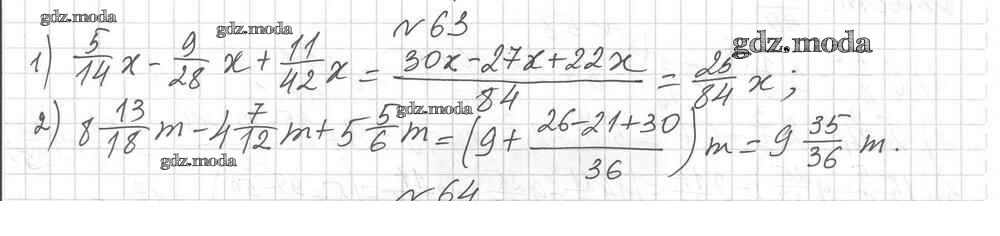 gdz.moda
№63
gdz.moda gdz.moda
1) 5/14 x - 9/28 x + 11/42 x = (30x - 27x + 22x)/84 = 25/84 x;
gdz.moda
2) 8 13/18 m - 4 7/12 m + 5 5/6 m = (9 + (26 - 21 + 30)/36) m = 9 35/36 m.
gdz.moda
№64